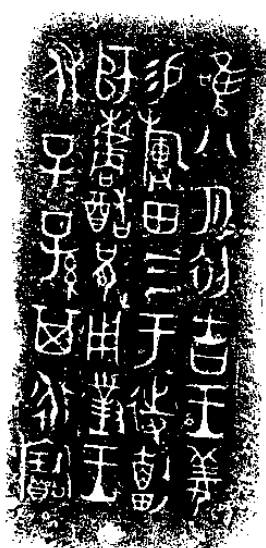 唯八月初吉王姜
易旟田三于待劃
師櫨酷兄用對王
休子子孫其永寶